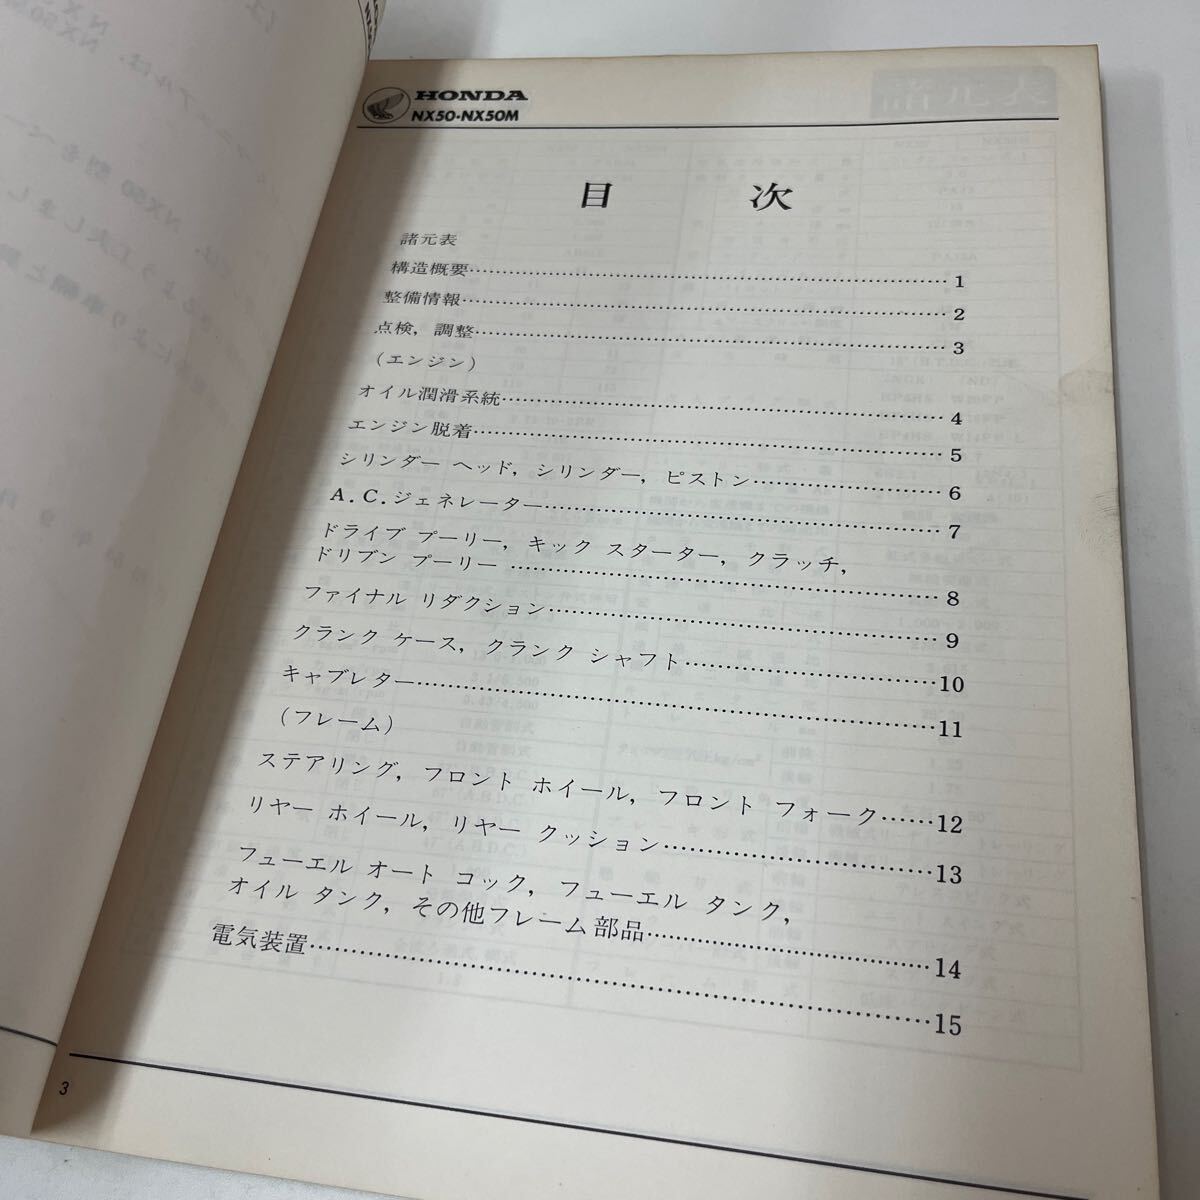 HONDA
NX50・NX50M
目次
諸元表
構造概要 1
整備情報 2
点検，調整 3
（エンジン）
オイル潤滑系統 4
エンジン脱着 5
シリンダー ヘッド，シリンダー，ピストン 6
A.C.ジェネレーター 7
ドライブ プーリー，キック スターター，クラッチ，
ドリブン プーリー 8
ファイナル リダクション 9
クランク ケース，クランク シャフト 10
キャブレター 11
（フレーム）
ステアリング，フロント ホイール，フロント フォーク 12
リヤー ホイール，リヤー クッション 13
フューエル オート コック，フューエル タンク，
オイル タンク，その他フレーム部品 14
電気装置 15
3